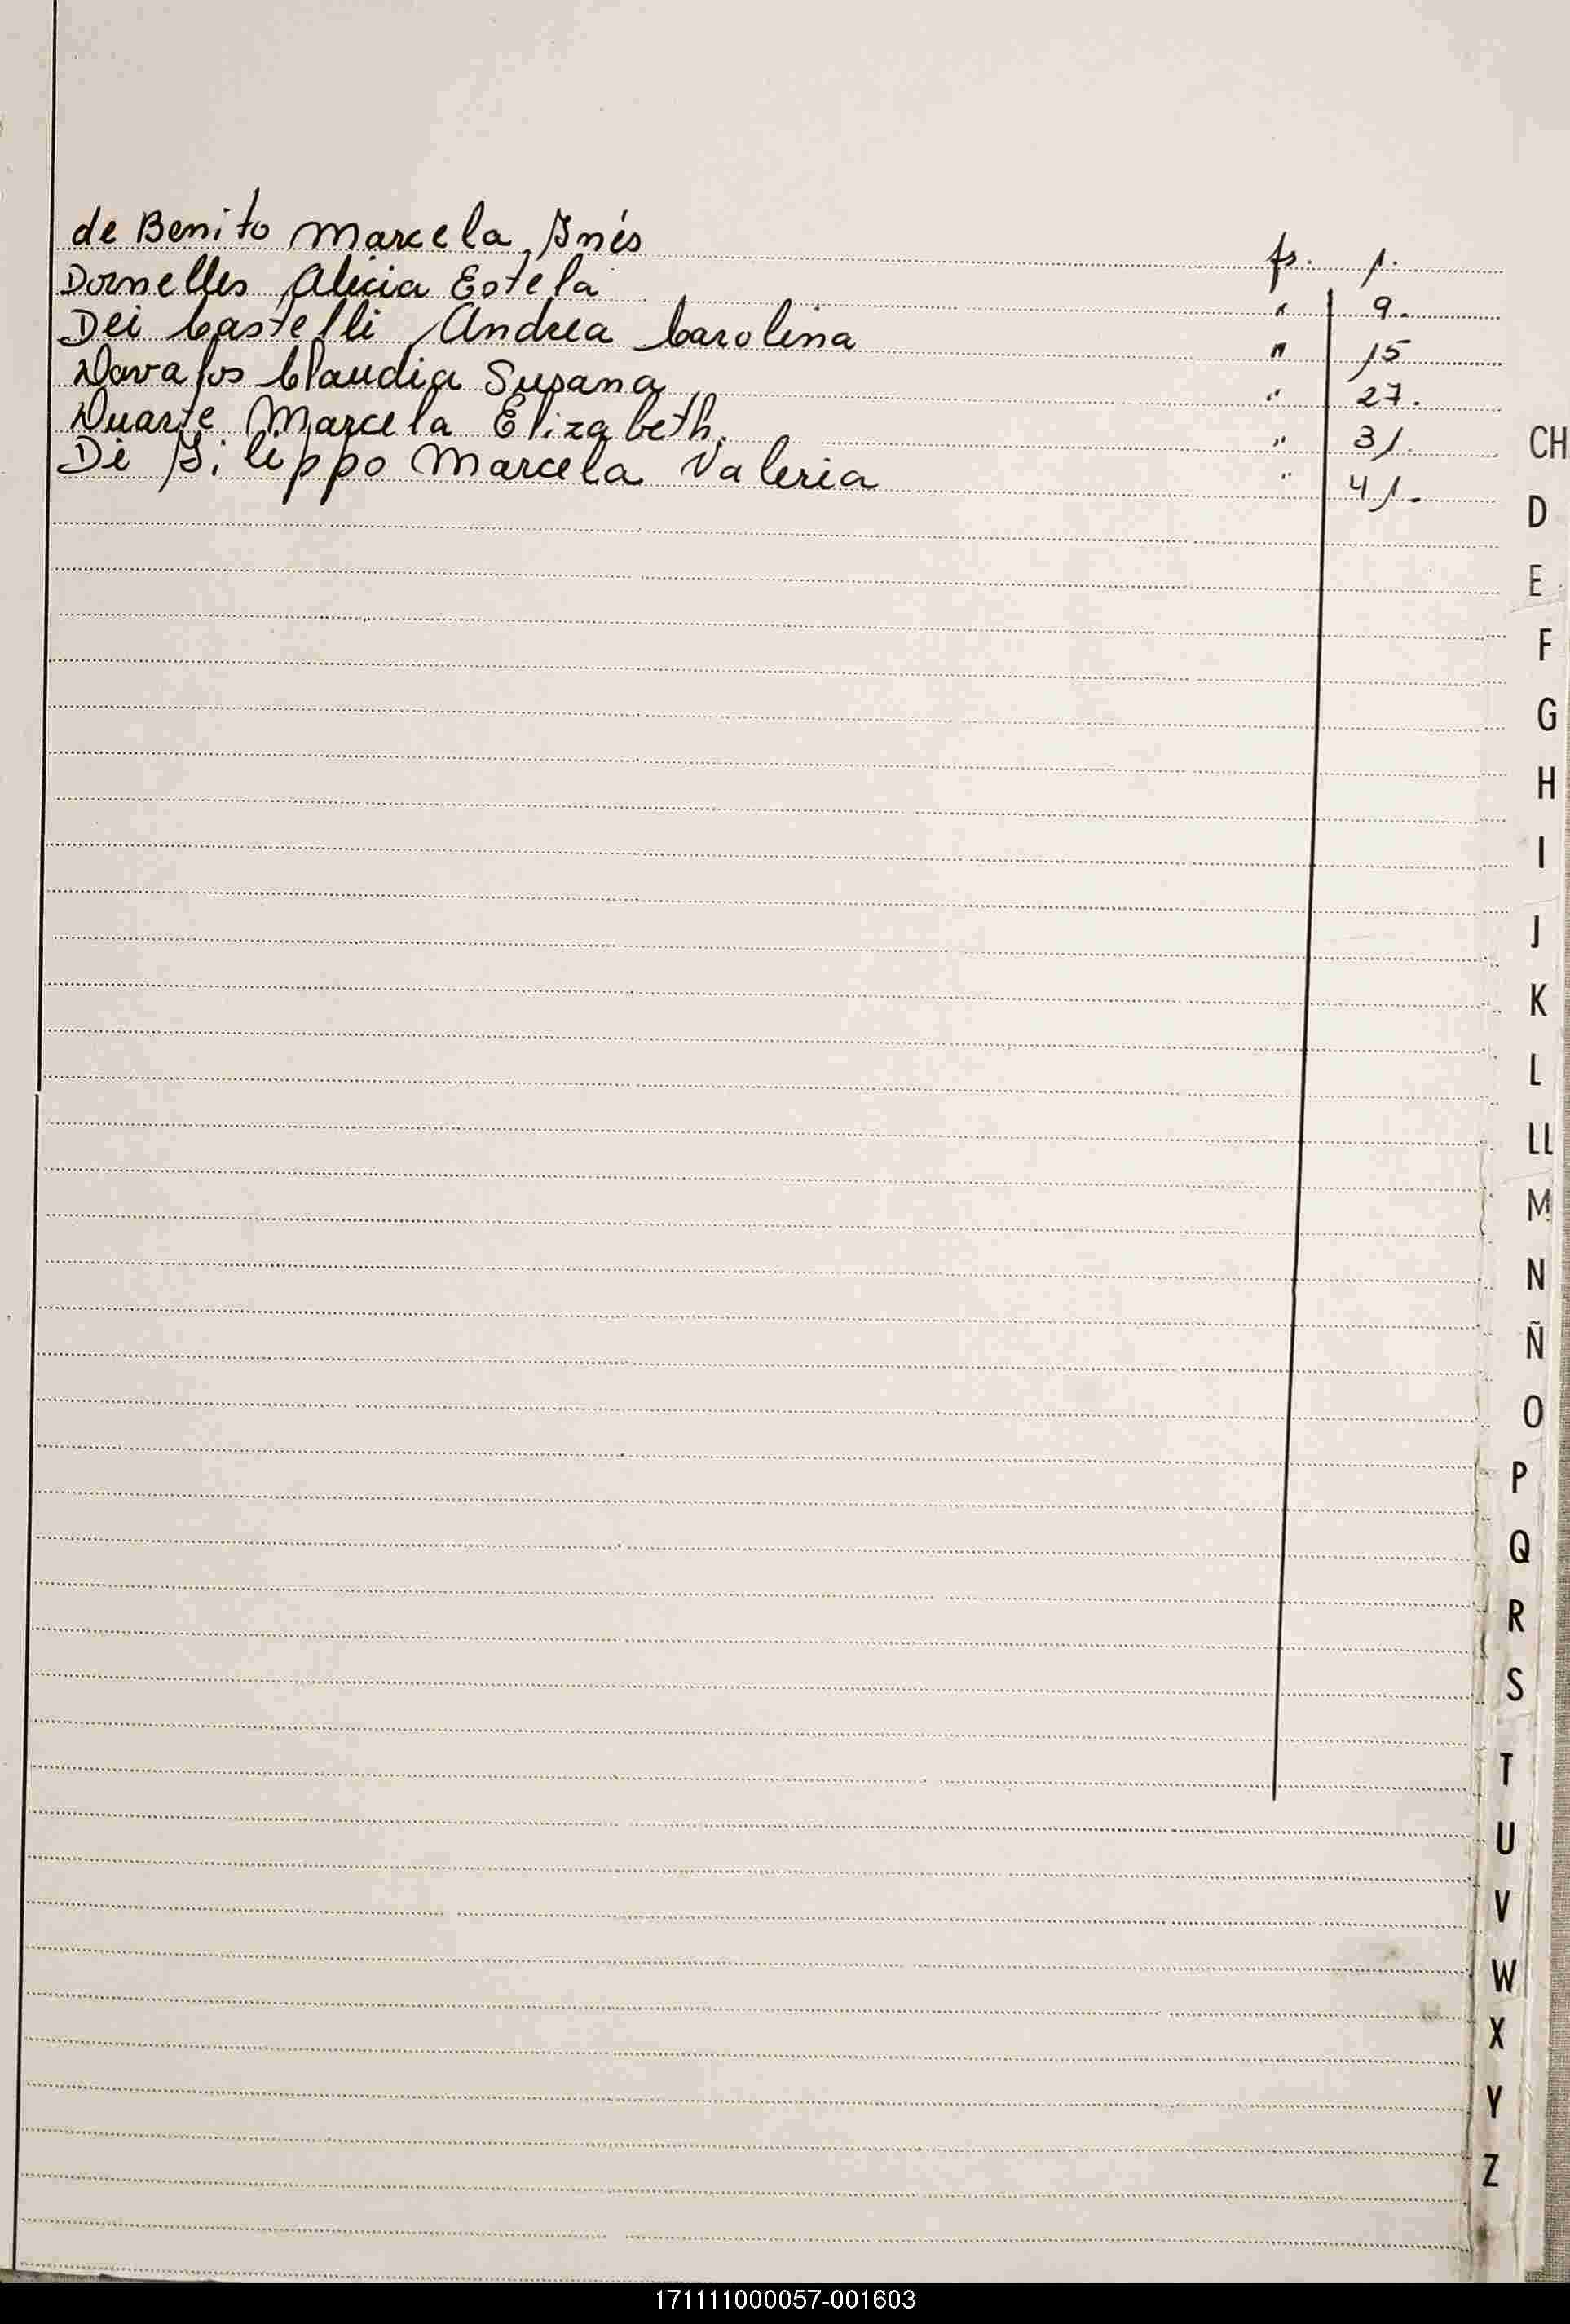 de Benito Marcela Inés fs. 1.
Dornelles Alicia Estela " 9.
Dei Castelli Andrea Carolina " 15
Davalos Claudia Susana " 27.
Duarte Marcela Elizabeth. " 31.
Di Filippo Marcela Valeria " 41.
CH
D
E
F
G
H
I
J
K
L
LL
M
N
Ñ
O
P
Q
R
S
T
U
V
W
X
Y
Z
171111000057-001603